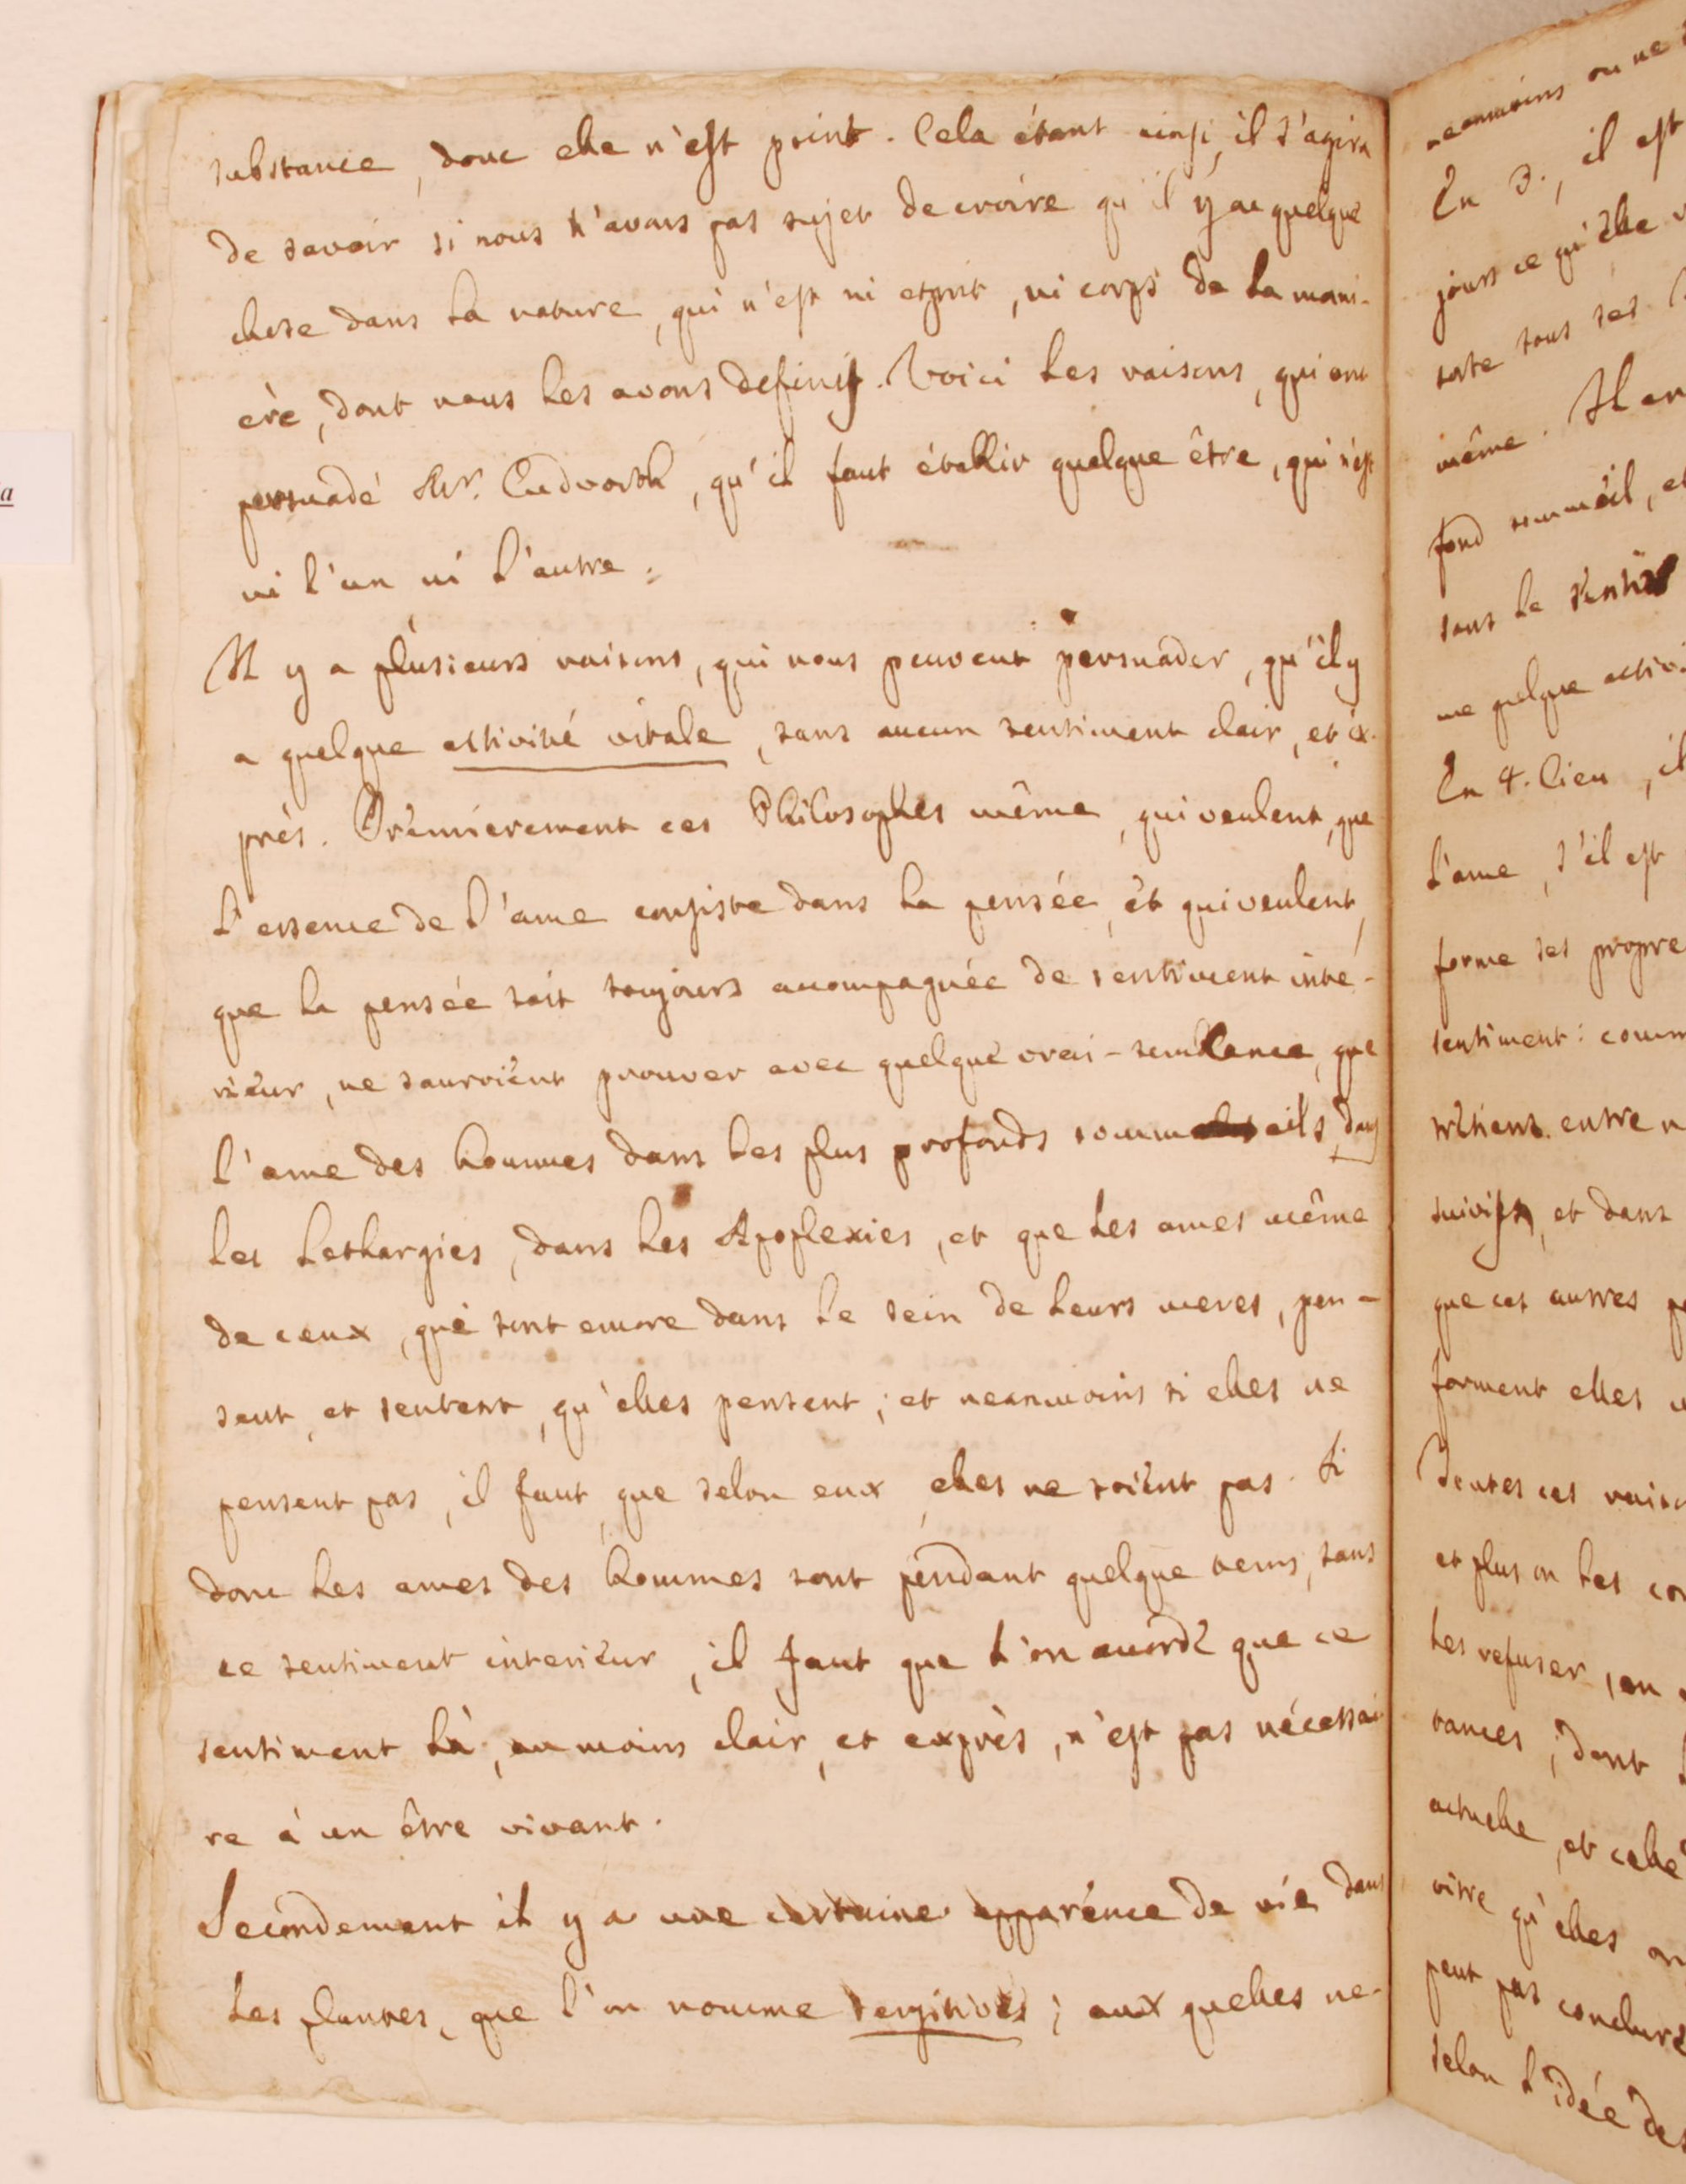 substance, donc elle n'est point. Cela étant ainsi, il s'agira
de savoir si nous n'avons pas sujet de croire qu'il y ae quelque
chose dans la nature, qui n'est ni esprit, ni corps de la mani-
ere, dont nous les avons definis. Voici les raisons, qui ont
persuadé Mr. Cudworth, qu'il faut établir quelque être, qui n'est
ni l'un ni l'autre.
Il y a plusieurs raisons, qui nous peuvent persuader, qu'il y
a quelque activité vitale, sans aucun sentiment clair, et ex-
prés. Prémierement ces Philosophes même, qui veulent, que
l'essence de l'ame consiste dans la pensée, et qui veulent,
que la pensée soit toujours acompagnée de sentiment inté-
rieur, ne sauroient prouver avec quelque vrai-semblance, que
l'ame des hommes dans les plus profonds sommeils, dans
les Lethargies, dans les Apoplexies, et que les ames même
de ceux, qui sont encore dans le sein de leurs meres, pen-
sent, et sentent, qu'elles pensent; et neanmoins si elles ne
pensent pas, il faut, que selon eux, elles ne soient pas. Si
donc les ames des hommes sont pendant quelque tems, sans
ce sentiment interieur, il faut que l'on acorde que ce
sentiment là, au moins clair, et exprès, n'est pas nécessai
re à un être vivant.
Secondement il y a une certaine apparénce de vie dans
les plantes, que l'on nomme sensitives; aux quelles ne-
a
neanmoins on ne
En 3., il est
jours ce qu'elle
sorte tous ses
même. Il ar
fond sommeil, et
sans le sentir
me quelque activi
En 4. lieu, il
l'ame, s'il est
forme ses propre
sentiment: comm
entre n
et dans
que ces autres
forment elles
Toutes ces raiso
et plus on les co
les refuser, en
tances, dont
actuelle, et celle
vitre qu'elles on
peut pas conclure
selon l'idée des